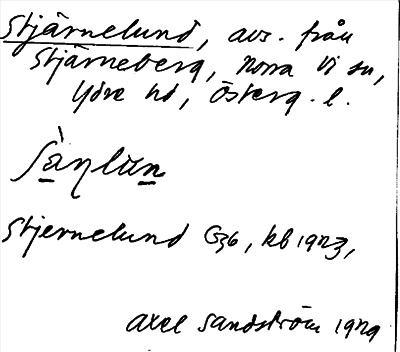 Stjärnelund, avs. från
Stjärneberg, Norra Vi sn,
Ydre hd, Österg. l.
Stjernelund G36, kb 1923,
Axel Sandström 1929